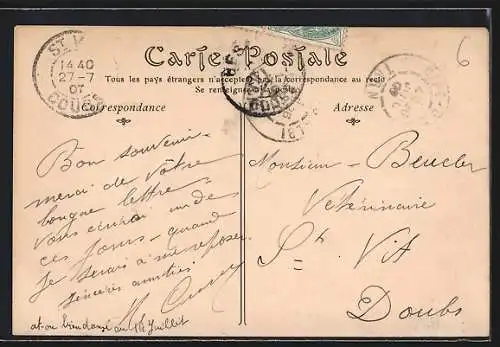 Carte Postale
Tous les pays étrangers n'acceptent pas la correspondance au recto
Se renseigner à la poste
Correspondance
Adresse
6
ST. V
14 40
27-7
07
DOUBS
DOUBS
Bon souvenir
merci de vôtre
longue lettre
vous écrirai un de
ces jours - quand
je serai à me reposer
sincères amitiés
Monsieur Beucler
Vétérinaire
St. Vit
Doubs
at-on bien dansé au 14 Juillet